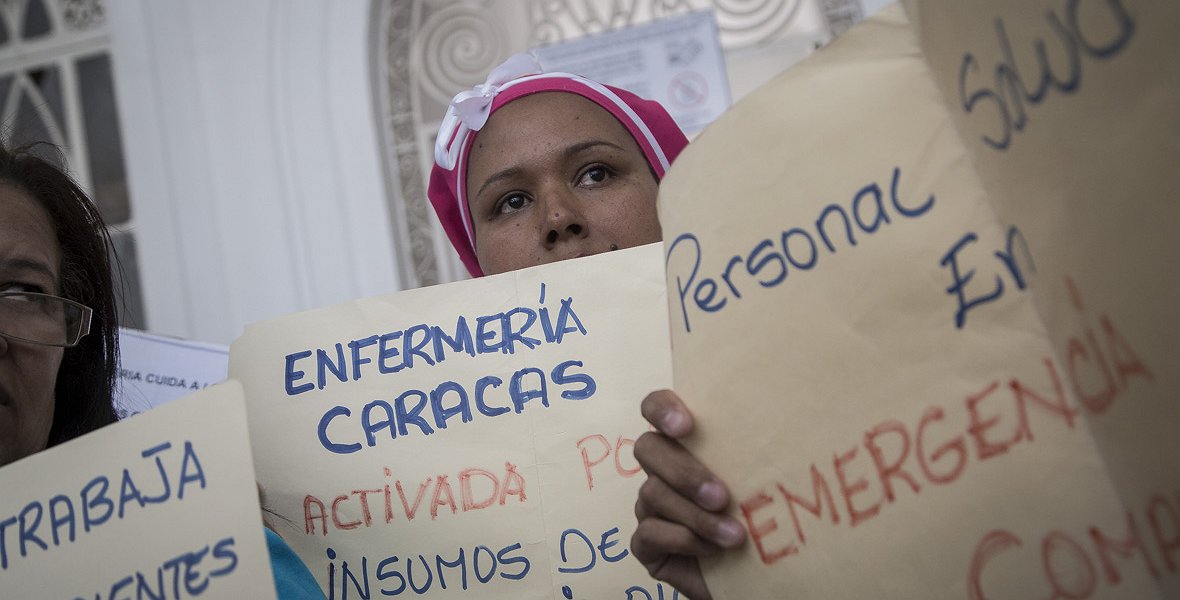 TRABAJA
IENTES
RIA CUIDA A L
ENFERMERÍA
CARACAS
ACTIVADA PO
INSUMOS DE
Personal
En
EMERGENCIA
COMP
Salud